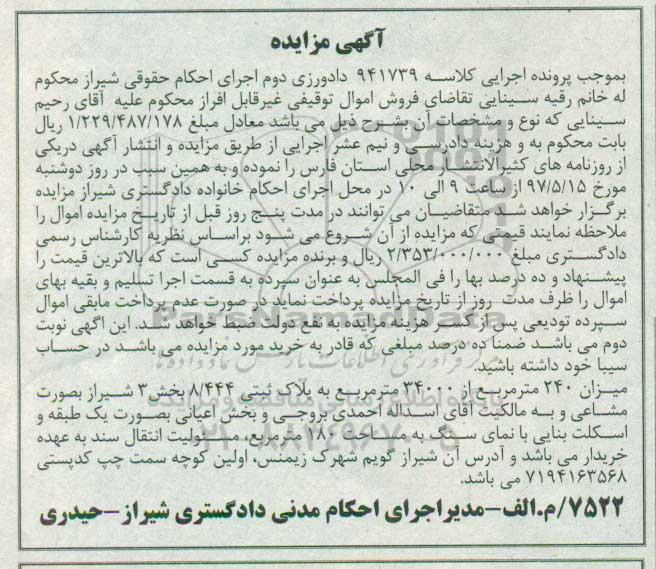 آگهی مزایده
بموجب پرونده اجرایی کلاسه ۹۴۱۷۳۹ دادورزی دوم اجرای احکام حقوقی شیراز محکوم
له خانم رقیه سینایی تقاضای فروش اموال توقیفی غیرقابل افراز محکوم علیه آقای رحیم
سینایی که نوع و مشخصات آن بشرح ذیل می باشد معادل مبلغ ۱/۲۲۹/۴۸۷/۱۷۸ ریال
بابت محکوم به و هزینه دادرسی و نیم عشر اجرایی از طریق مزایده و انتشار آگهی دریکی
از روزنامه های کثیرالانتشار محلی استان فارس را نموده و به همین سبب در روز دوشنبه
مورخ ۹۷/۵/۱۵ از ساعت ۹ الی ۱۰ در محل اجرای احکام خانواده دادگستری شیراز مزایده
برگزار خواهد شد متقاضیان می توانند در مدت پنج روز قبل از تاریخ مزایده اموال را
ملاحظه نمایند قیمتی که مزایده از آن شروع می شود براساس نظریه کارشناس رسمی
دادگستری مبلغ ۲/۳۵۳/۰۰۰/۰۰۰ ریال و برنده مزایده کسی است که بالاترین قیمت را
پیشنهاد و ده درصد بها را فی المجلس به عنوان سپرده به قسمت اجرا تسلیم و بقیه بهای
اموال را ظرف مدت روز از تاریخ مزایده پرداخت نماید در صورت عدم پرداخت مابقی اموال
سپرده تودیعی پس از کسر هزینه مزایده به نفع دولت ضبط خواهد شد. این آگهی نوبت
دوم می باشد ضمنا ده درصد مبلغی که قادر به خرید مورد مزایده می باشد در حساب
سیبا خود داشته باشید.
میزان ۲۴۰ مترمربع از ۳۴۰۰۰ مترمربع به پلاک ثبتی ۸/۴۴۴ بخش ۳ شیراز بصورت
مشاعی و به مالکیت آقای اسداله احمدی بروجی و بخش اعیانی بصورت یک طبقه و
اسکلت بنایی با نمای سنگ به مساحت ۱۸۰ مترمربع، مسئولیت انتقال سند به عهده
خریدار می باشد و آدرس آن شیراز گویم شهرک زیمنس، اولین کوچه سمت چپ کدپستی
۷۱۹۴۱۶۳۵۶۸ می باشد.
۷۵۲۲/م.الف-مدیراجرای احکام مدنی دادگستری شیراز-حیدری
ParsNamadData